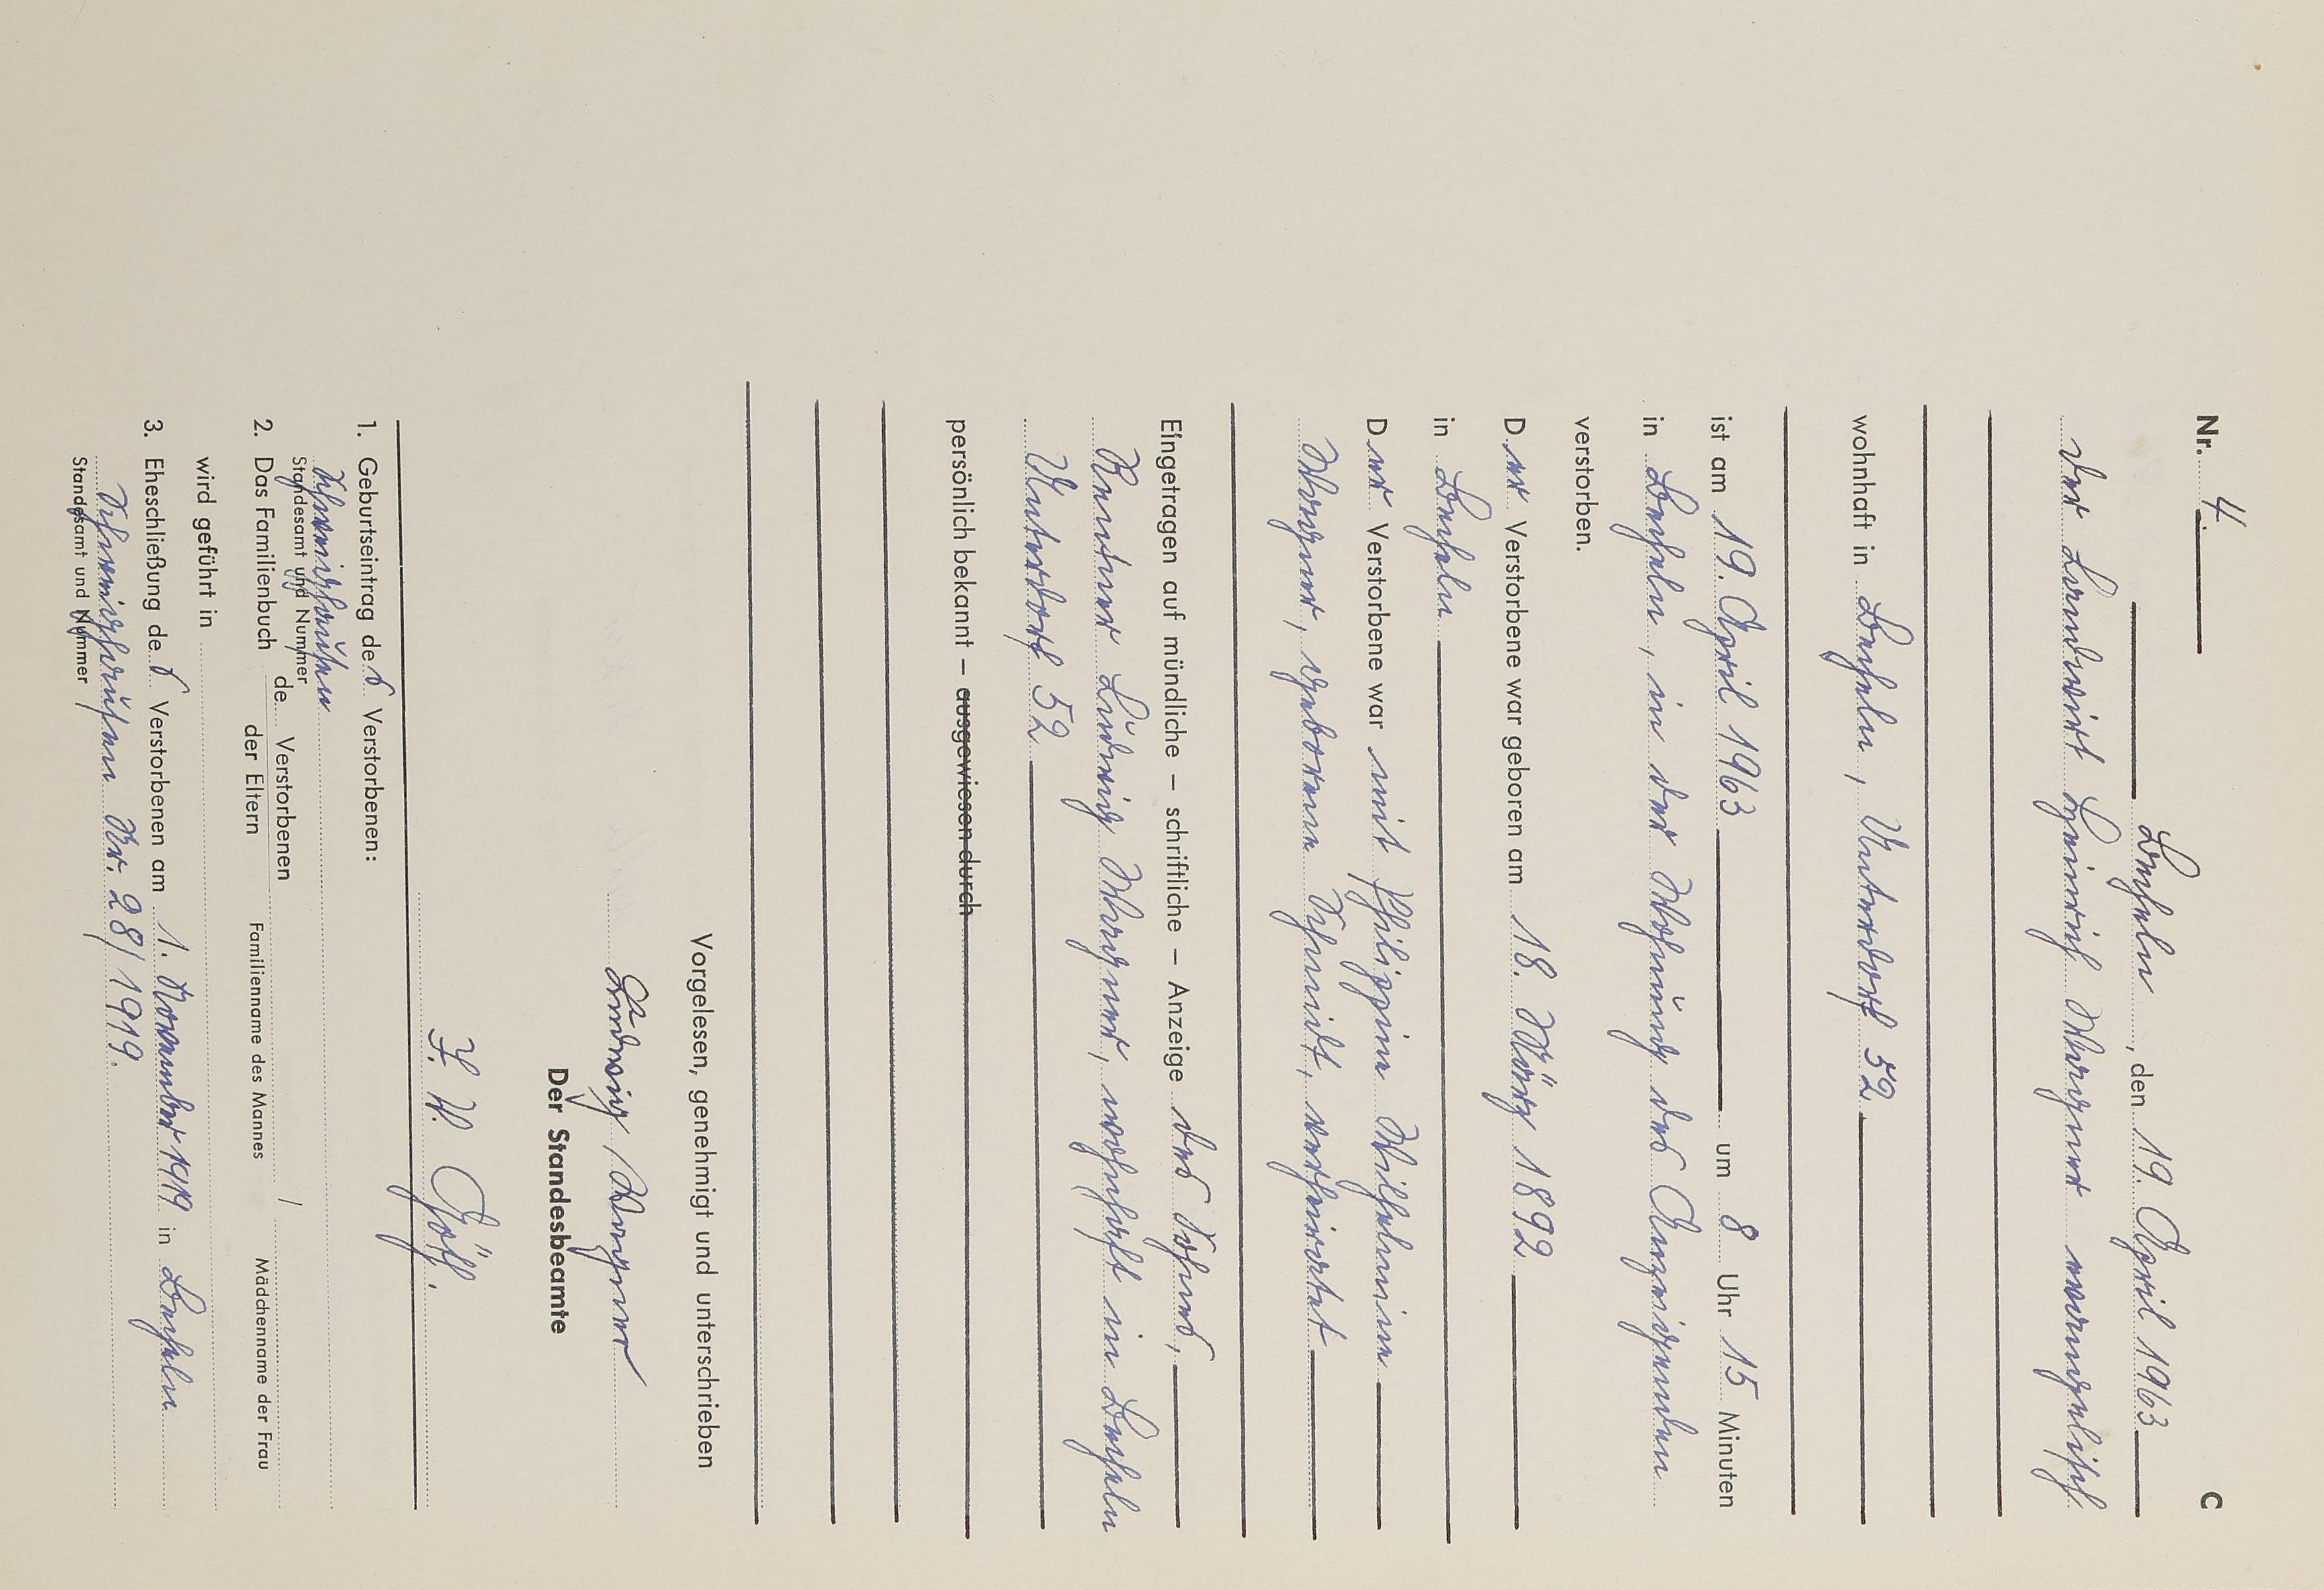 Nr. 4. C
Loshausen, den 19. April 1963
der Landwirt Heinrich Wagner evangelisch
wohnhaft in , Unterdorf 52
ist am 19. April 1963 um 8 Uhr 15 Minuten
in , in der Wohnung des Anzeigenden
verstorben.
Der Verstorbene war geboren am 18. März 1892
in
Der Verstorbene war mit Philippine Wilhelmine
Wagner, geborene Schmidt, verheiratet
Eingetragen auf mündliche – schriftliche – Anzeige des Sohnes,
Rentner Ludwig Wagner, wohnhaft in
Unterdorf 52
persönlich bekannt – ausgewiesen durch
Vorgelesen, genehmigt und unterschrieben
Ludwig Wagner
Der Standesbeamte
I. V.
1. Geburtseintrag des Verstorbenen:
Standesamt und Nummer
2. Das Familienbuch de Verstorbenen
der Eltern Familienname des Mannes / Mädchenname der Frau
wird geführt in
3. Eheschließung des Verstorbenen am 1. November 1919 in
Nr. 28/1919.
Standesamt und Nummer